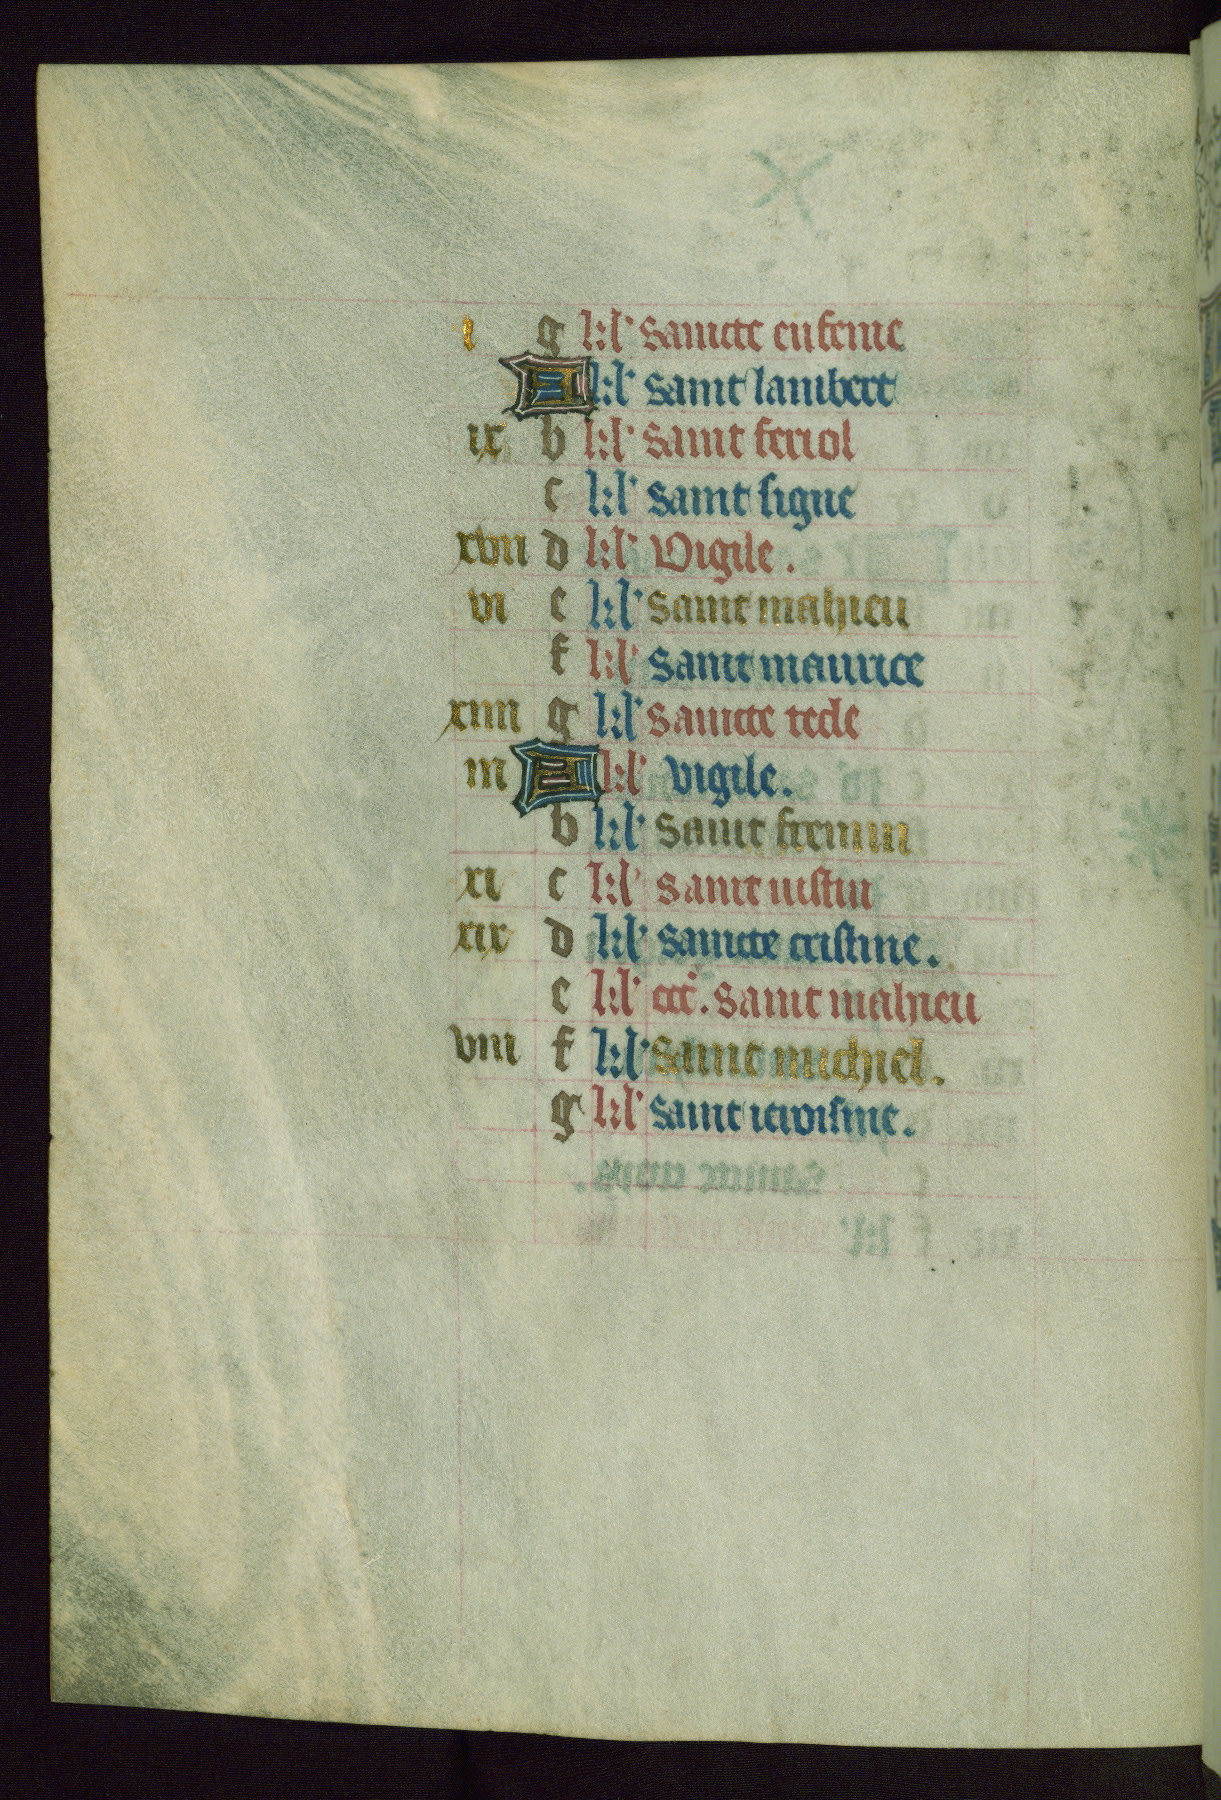 i g kl' Saincte eufeme
A kl' Saint lambert
ix b kl' Saint feriol
c kl' Saint signe
xvii d kl' Vigile.
vi e kl' Saint mahieu
f kl' Saint maurice
xiiii g kl' Saincte tecle
iii A kl' vigile.
b kl' Saint fremin
xi c kl' Saint iustin
xix d kl' Saincte cristine.
e kl' oct'. Saint mahieu
viii f kl' Saint michiel.
g kl' Saint